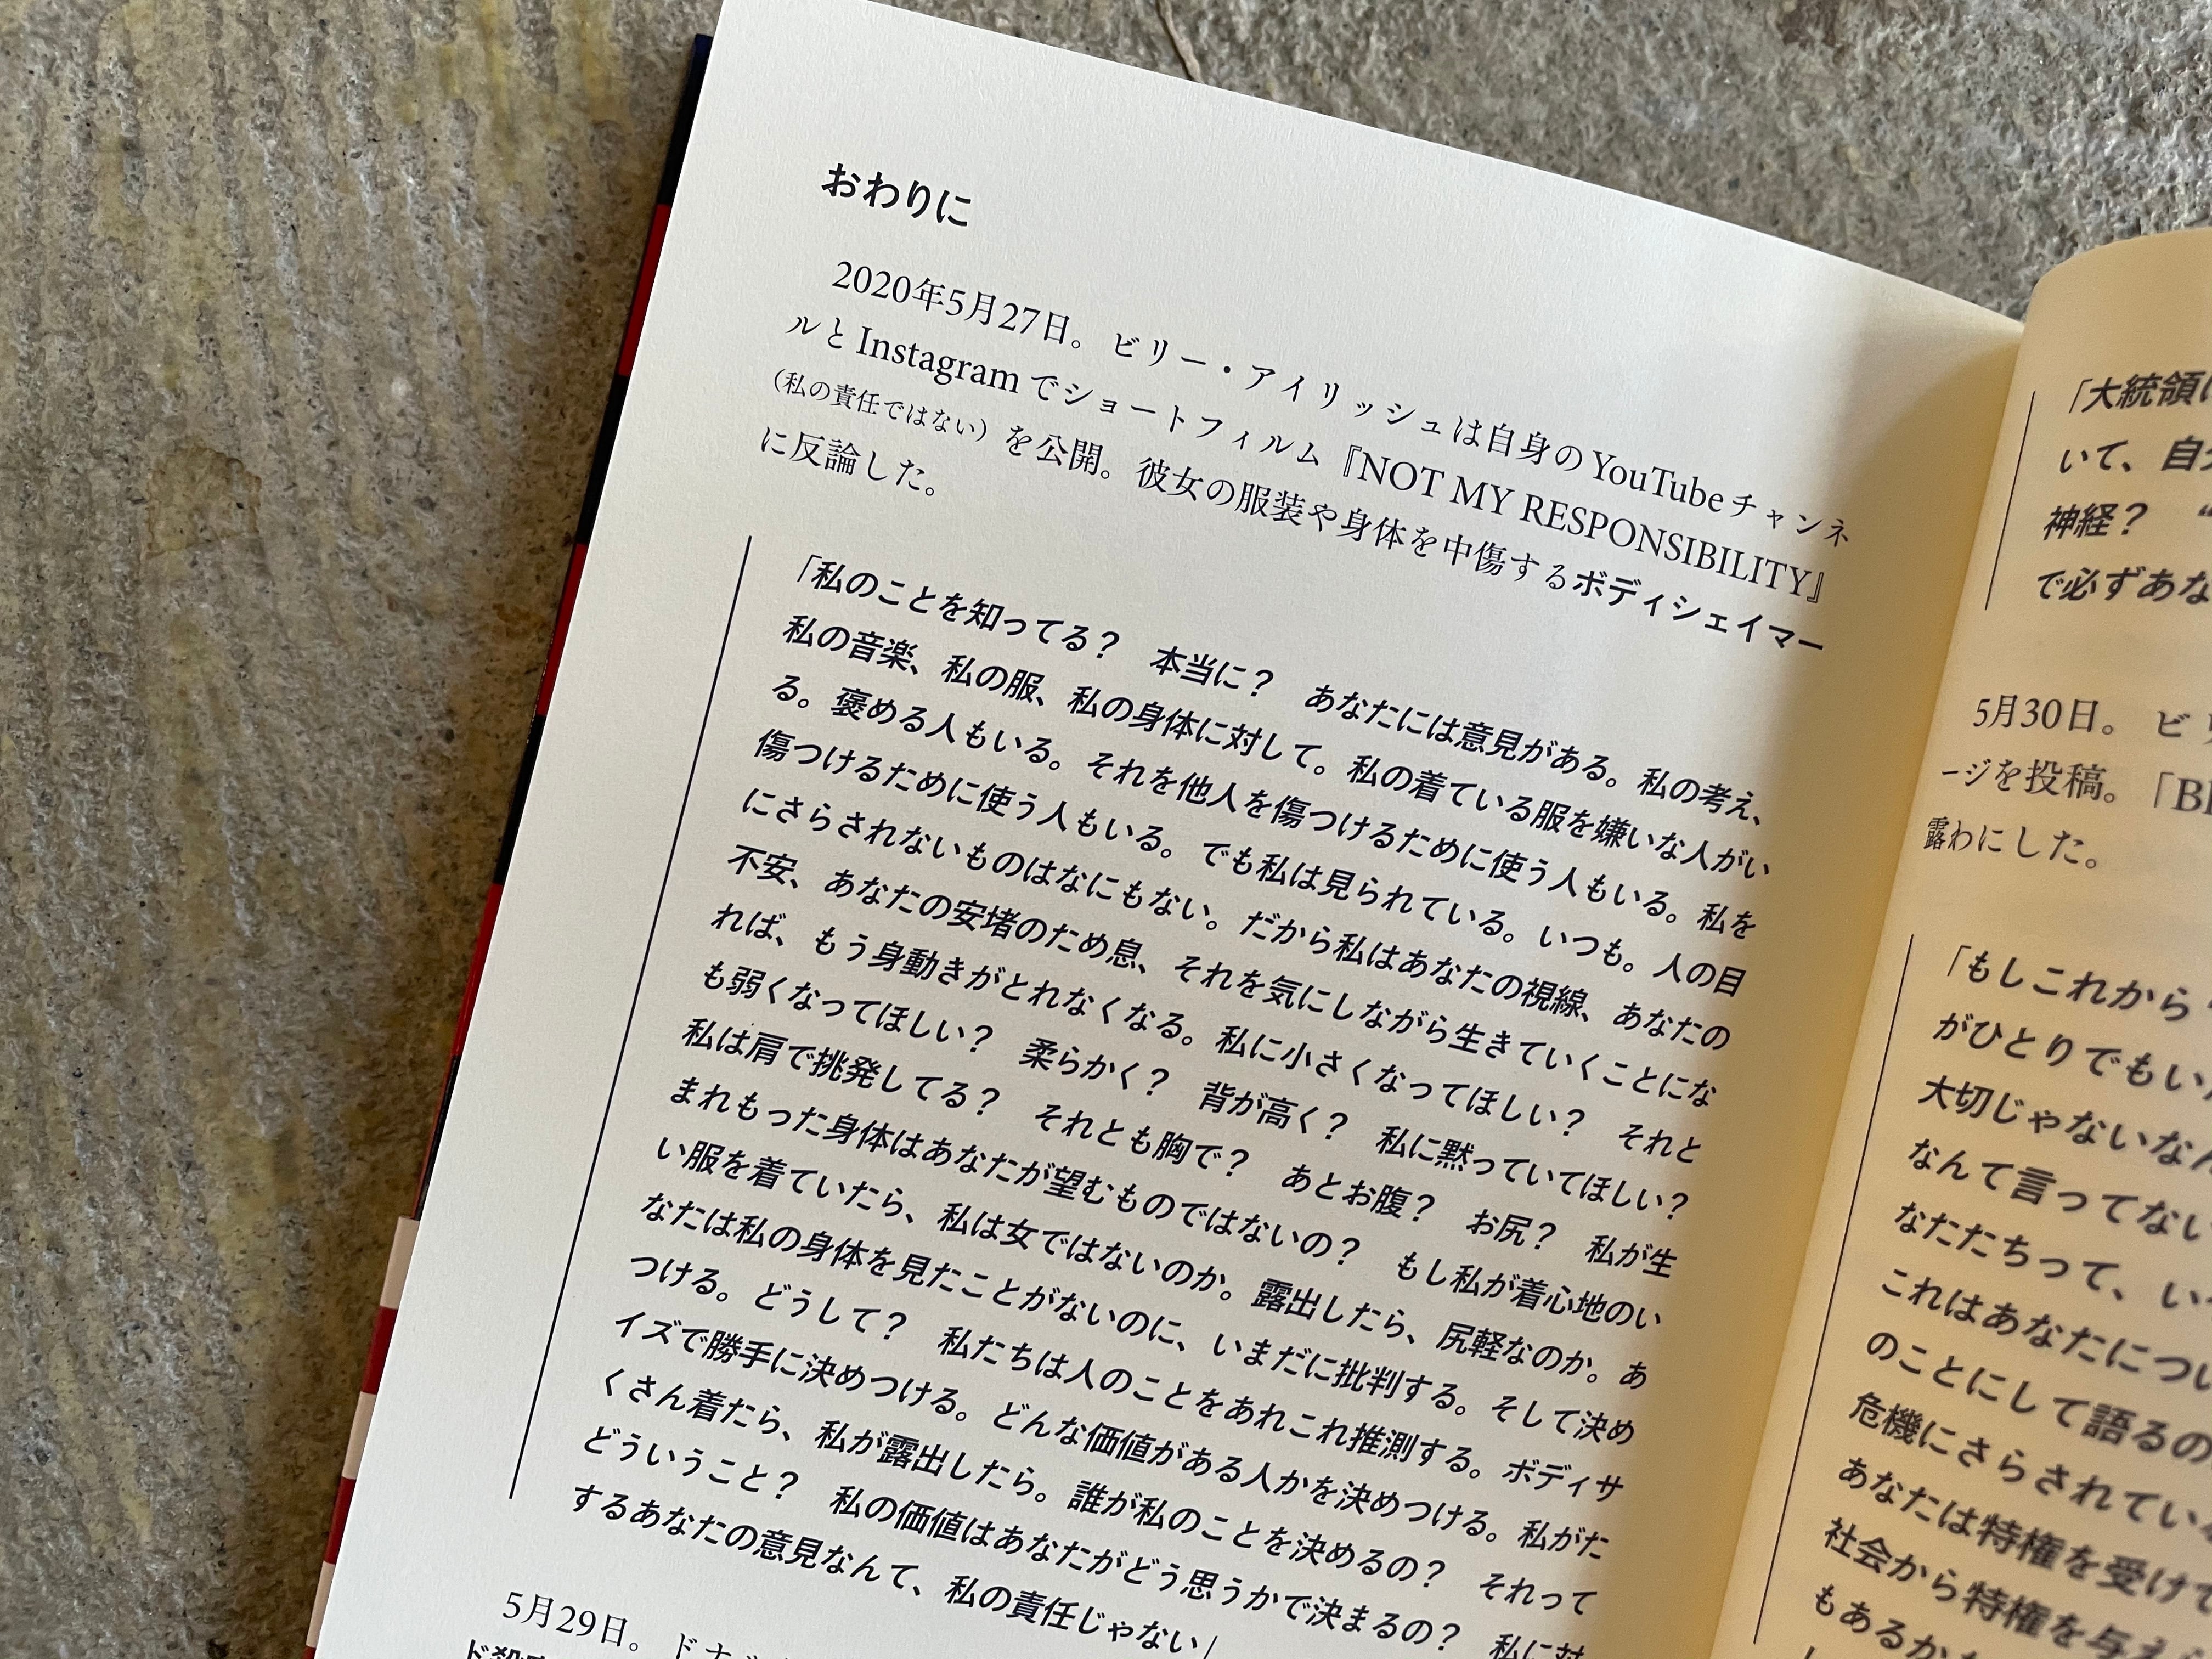 おわりに
2020年5月27日。ビリー・アイリッシュは自身のYouTubeチャンネ
ルとInstagramでショートフィルム『NOT MY RESPONSIBILITY』
（私の責任ではない）を公開。彼女の服装や身体を中傷するボディシェイマー
に反論した。
「私のことを知ってる？　本当に？　あなたには意見がある。私の考え、
私の音楽、私の服、私の身体に対して。私の着ている服を嫌いな人がい
る。褒める人もいる。それを他人を傷つけるために使う人もいる。私を
傷つけるために使う人もいる。でも私は見られている。いつも。人の目
にさらされないものはなにもない。だから私はあなたの視線、あなたの
不安、あなたの安堵のため息、それを気にしながら生きていくことにな
れば、もう身動きがとれなくなる。私に小さくなってほしい？　それと
も弱くなってほしい？　柔らかく？　背が高く？　私に黙っていてほしい？
私は肩で挑発してる？　それとも胸で？　あとお腹？　お尻？　私が生
まれもった身体はあなたが望むものではないの？　もし私が着心地のい
い服を着ていたら、私は女ではないのか。露出したら、尻軽なのか。あ
なたは私の身体を見たことがないのに、いまだに批判する。そして決め
つける。どうして？　私たちは人のことをあれこれ推測する。ボディサ
イズで勝手に決めつける。どんな価値がある人かを決めつける。私がた
くさん着たら、私が露出したら。誰が私のことを決めるの？　それって
どういうこと？　私の価値はあなたがどう思うかで決まるの？　私に対
するあなたの意見なんて、私の責任じゃない」
5月29日。ドナ
「大統領
いて、自
神経？　“
で必ずあな
5月30日。ビ
ージを投稿。「B
露わにした。
「もしこれから
がひとりでもい
大切じゃないな
なんて言ってない
なたたちって、い
これはあなたについ
のことにして語るの
危機にさらされてい
あなたは特権を受け
社会から特権を与え
もあるか